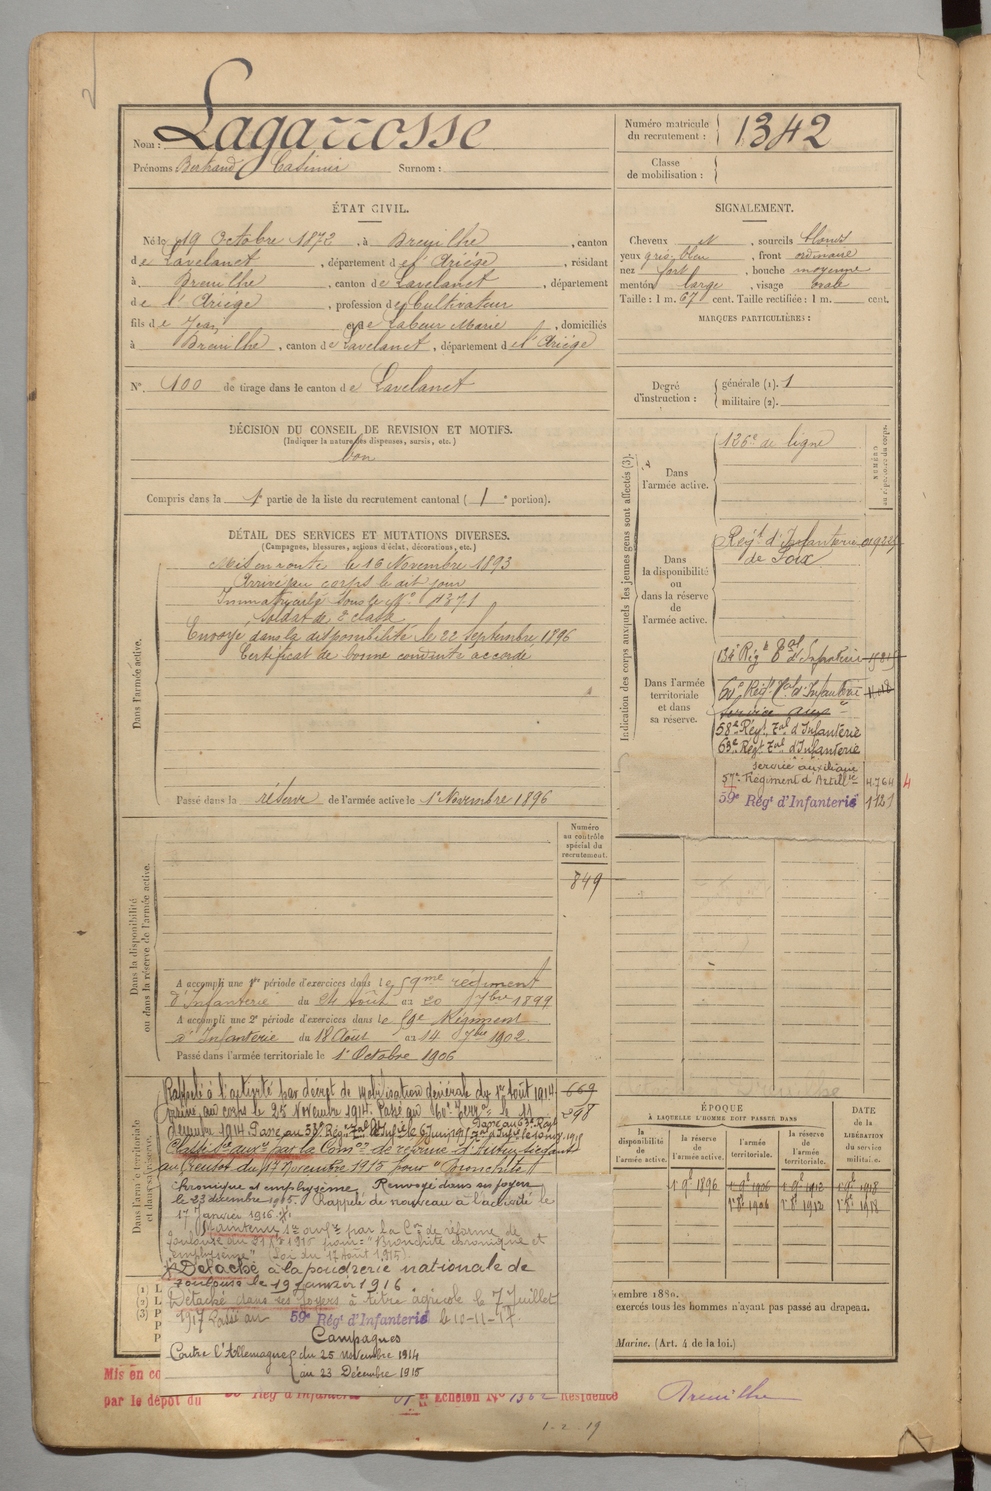 Nom : Lagarrosse
Prénoms Bertrand Casimir Surnom :
Numéro matricule du recrutement : 1342
Classe de mobilisation :
ÉTAT CIVIL.
Né le 19 Octobre 1872, à Dreuilhe, canton
de Lavelanet, département de l'Ariège, résidant
à Dreuilhe, canton de Lavelanet, département
de l'Ariège, profession de Cultivateur
fils de Jean et de Labeur Marie, domiciliés
à Dreuilhe, canton de Lavelanet, département de l'Ariège
N° 100 de tirage dans le canton de Lavelanet
SIGNALEMENT.
Cheveux et, sourcils blonds
yeux gris bleu, front ordinaire
nez fort, bouche moyenne
menton large, visage ovale
Taille : 1 m. 67 cent. Taille rectifiée : 1 m. cent.
MARQUES PARTICULIÈRES :
Degré d'instruction : générale (1). 1
militaire (2).
DÉCISION DU CONSEIL DE REVISION ET MOTIFS.
(Indiquer la nature des dispenses, sursis, etc.)
bon
Compris dans la 1e partie de la liste du recrutement cantonal (1e portion).
DÉTAIL DES SERVICES ET MUTATIONS DIVERSES.
(Campagnes, blessures, actions d'éclat, décorations, etc.)
Dans l'armée active.
Mis en route le 16 Novembre 1893
Arrivé au corps le dit jour
Immatriculé sous le N° 4371
Soldat de 2e classe
Envoyé dans la disponibilité le 22 Septembre 1896
Certificat de bonne conduite accordé
Passé dans la réserve de l'armée active le 1er Novembre 1896
Indication des corps auxquels les jeunes gens sont affectés (3).
Dans l'armée active.
126e de ligne
Dans la disponibilité ou dans la réserve de l'armée active.
Régt d'Infanterie
de Foix
Dans l'armée territoriale et dans sa réserve.
134e Régt Tal d'Infanterie
60e Régt Tal d'Infanterie
service aux
58e Régt Tal d'Infanterie
63e Régt Tal d'Infanterie
service auxiliaire
57e Régiment d'Artillie 4764
59e Régt d'Infanterie 1121
Numéro au contrôle spécial du recrutement.
849
Dans la disponibilité ou dans la réserve de l'armée active.
A accompli une 1re période d'exercices dans le 59me régiment
d'Infanterie du 24 Août au 20 7bre 1899
A accompli une 2e période d'exercices dans le 59e Régiment
d'Infanterie du 18 Août au 14 7bre 1902.
Passé dans l'armée territoriale le 1er Octobre 1906
Dans l'armée territoriale et dans sa réserve.
Rappelé à l'activité par décret de mobilisation générale du 1er Août 1914 669
Arrivé au corps le 25 Novembre 1914. Passé au 60e Terral le 11 298
décembre 1914. Passé au 58e Régt Tal d'Infie le 6 Juin 1915. Passé au 63e Régt
Tal d'Infie le 10 nov. 1915
Classé Sce auxre par la Comon de réforme d'
du 17 Novembre 1915 pour "Bronchite
chronique et emphysème. Renvoyé dans ses foyers
le 23 décembre 1915. Rappelé de nouveau à l'activité le
17 Janvier 1916.
Maintenu Sce auxre par la Con de réforme de
Toulouse au 31 Xbre 1915 pour : "Bronchite chronique et
emphysème" (Loi du 17 Août 1915)
Détaché à la poudrerie nationale de
Toulouse le 19 Janvier 1916
Détaché dans ses foyers à titre agricole le 7 Juillet
1917 Passé au 59e Régt d'Infanterie le 10-11-17.
Campagnes
Contre l'Allemagne du 25 novembre 1914
au 23 Décembre 1915
ÉPOQUE
À LAQUELLE L'HOMME DOIT PASSER DANS
la disponibilité de l'armée active.
la réserve de l'armée active.
l'armée territoriale.
la réserve de l'armée territoriale.
DATE de la LIBÉRATION du service militaire.
1 9bre 1896 1 9bre 1906 1 9bre 1912 1 9bre 1918
1er 8bre 1906 1er 8bre 1912 1er 8bre 1918
embre 1880.
exercés tous les hommes n'ayant pas passé au drapeau.
Marine. (Art. 4 de la loi.)
Mis en co
par le dépôt du Rég d'Infanterie Echelon N° 1362 Résidence Dreuilhe
1-2-19